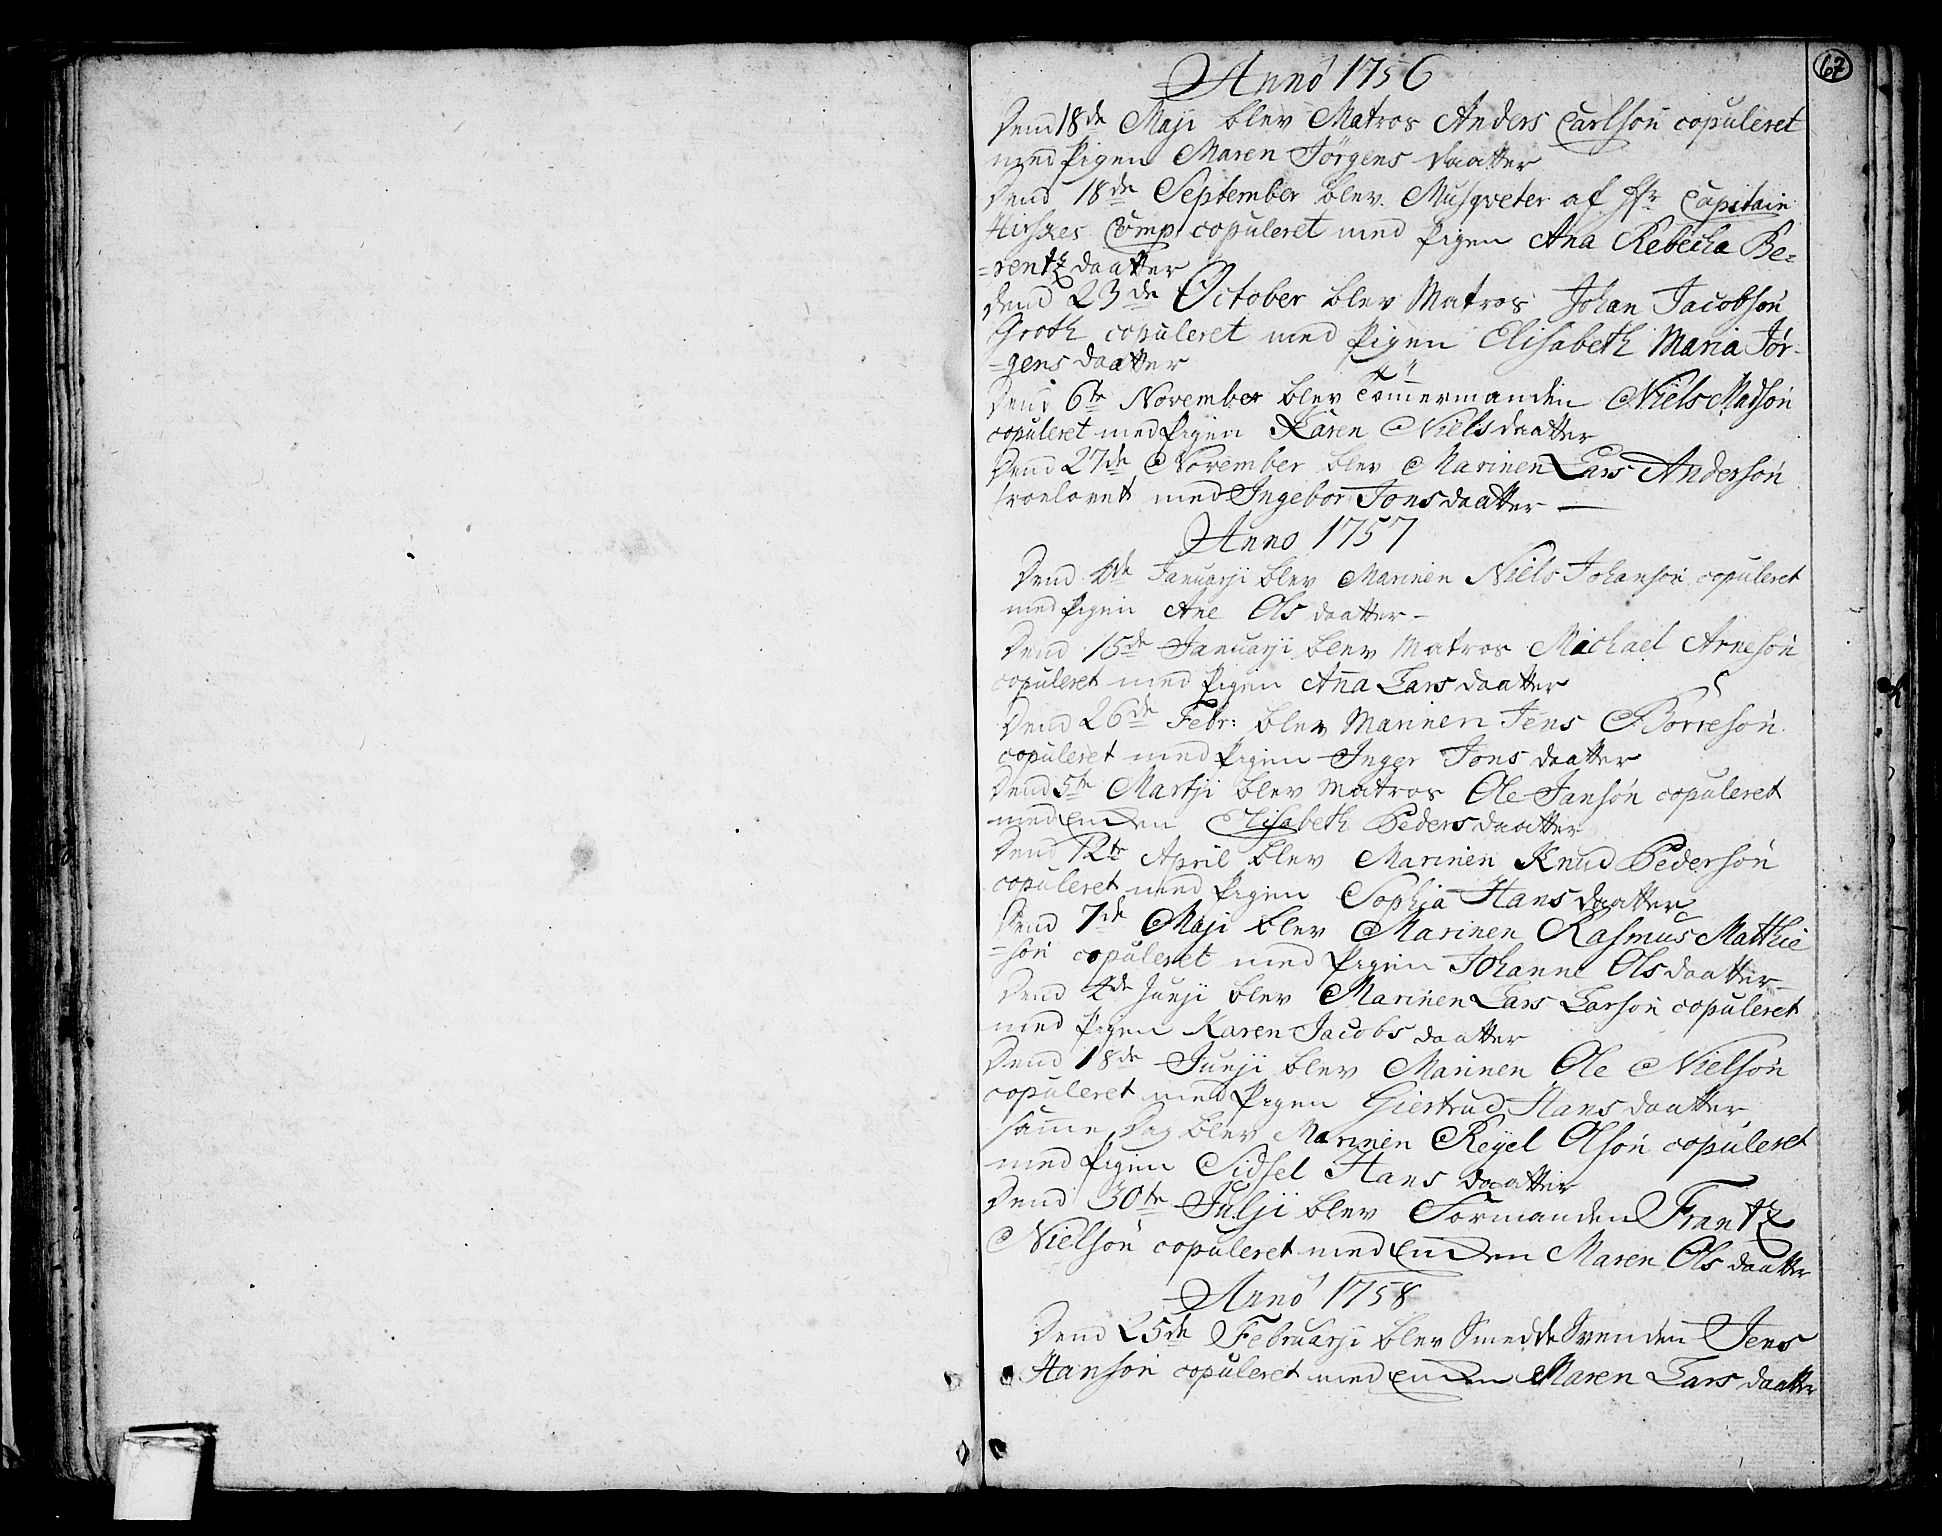 67
Anno 1756
Dend 18de Maji blev Matros Anders Carlsón copuleret
med Pigen Maren Jörgens daatter
Dend 18de September blev Musqveter af Hr Capitain
Hirskes Comp: copuleret med Pigen Ana Rebecha Be=
=rentz daatter
dend 23de October blev Matros Johan Jacobsón
Groth copuleret med Pigen Elisabeth Maria Jör-
=gens daatter
Dend 6te November blev Tömermanden Niels Madsón
copuleret med Pigen Karen Nielsdaatter
Dend 27de November blev Marinen Lars Andersón
troelovet med Ingebor Jonsdaatter —
Anno 1757
Dend Januarji blev Marinen Niels Johansón copuleret
med Pigen Ane Ols daatter –
Dend 15de Januarji blev Matros Michael Arnesón
copuleret med Pigen Aña Lars daatter
Dend 26de Febr: blev Marinen Jens Börresón
copuleret med Pigen Inger Jons daatter
Dend 5te Martji blev Matros Ole Jansón copuleret
med Enken Elisabeth Pedersdaatter
Dend 12te April blev Marinen Knud Pedersón
copuleret med Pigen Sophia Hansdaatter
Dend 7de Maji blev Marinen Rasmus Matthie
=són copuleret med Pigen Johanne Olsdaatter
Dend 4de Junji blev Marinen Lars Larsón copuleret
med Pigen Karen Jacobs daatter
Dend 18de Junji blev Marinen Ole Nielsón
copuleret med Pigen Giertrud Hans daatter
same Dag blev Marinen Reyel Olsón copuleret
med Pigen Sidsel Hans daatter
Dend 30te Julji blev Formanden Frantz
Nielsón copuleret med Enken Maren Ols daatter
Anno 1758
Dend 25de Februarji blev Smedde Svenden Jens
Hansón copuleret med Enken Maren Lars daatter